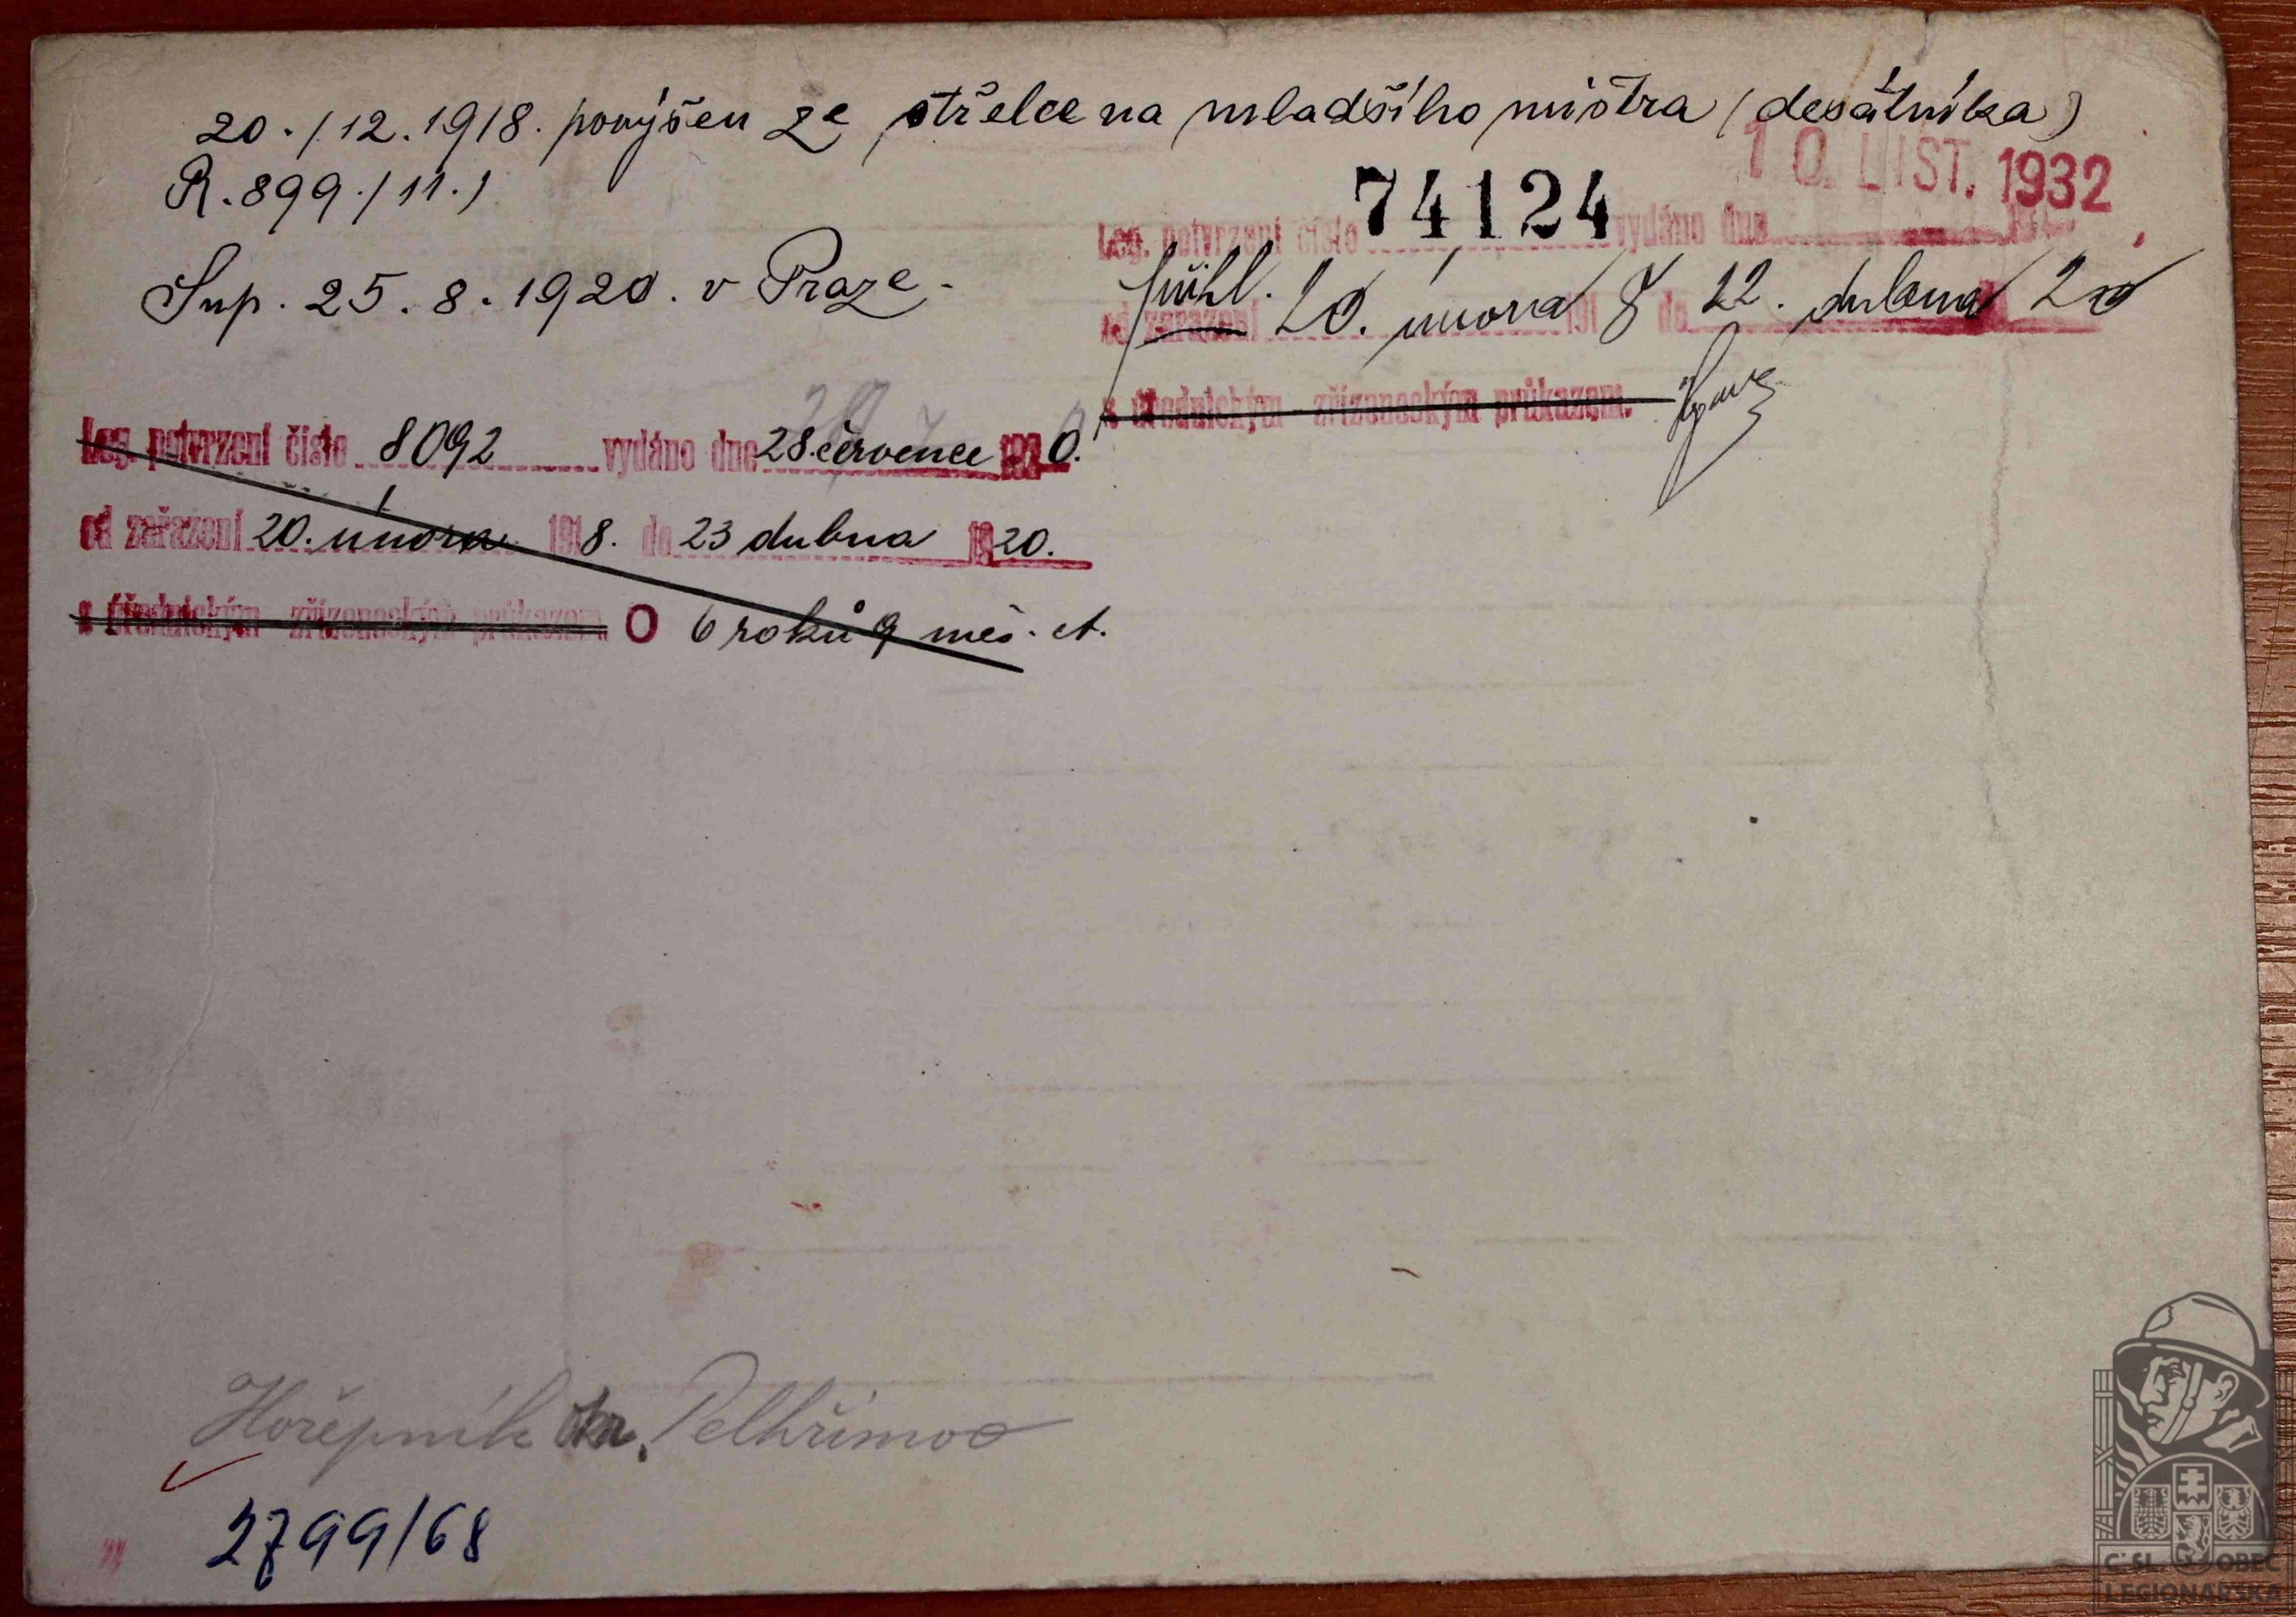 20./12.1918. povýšen ze střelce na mladšího mistra (desátníka)
R.899./11.)
Sup. 25.8.1920. v Praze.
10. LIST. 1932
Leg. potvrzení číslo 74124 vydáno dne
přihl. od zařazení 20. února 191 8 do 22. dubna 20
s úřednickým - zřízeneckým průkazem.
Leg. potvrzení číslo 8092 vydáno dne 28. července 1920.
od zařazení 20. února 1918. do 23 dubna 1920.
s úřednickým - zřízeneckým průkazem. O 6 roků 9 měs. čt.
Hořepník okr. Pelhřimov
2799/68
Č.SL. OBEC
LEGIONÁŘSKÁ